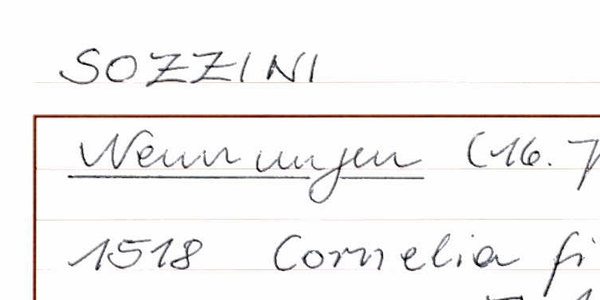 SOZZINI
Nennungen (16. J
1518 Cornelia fi